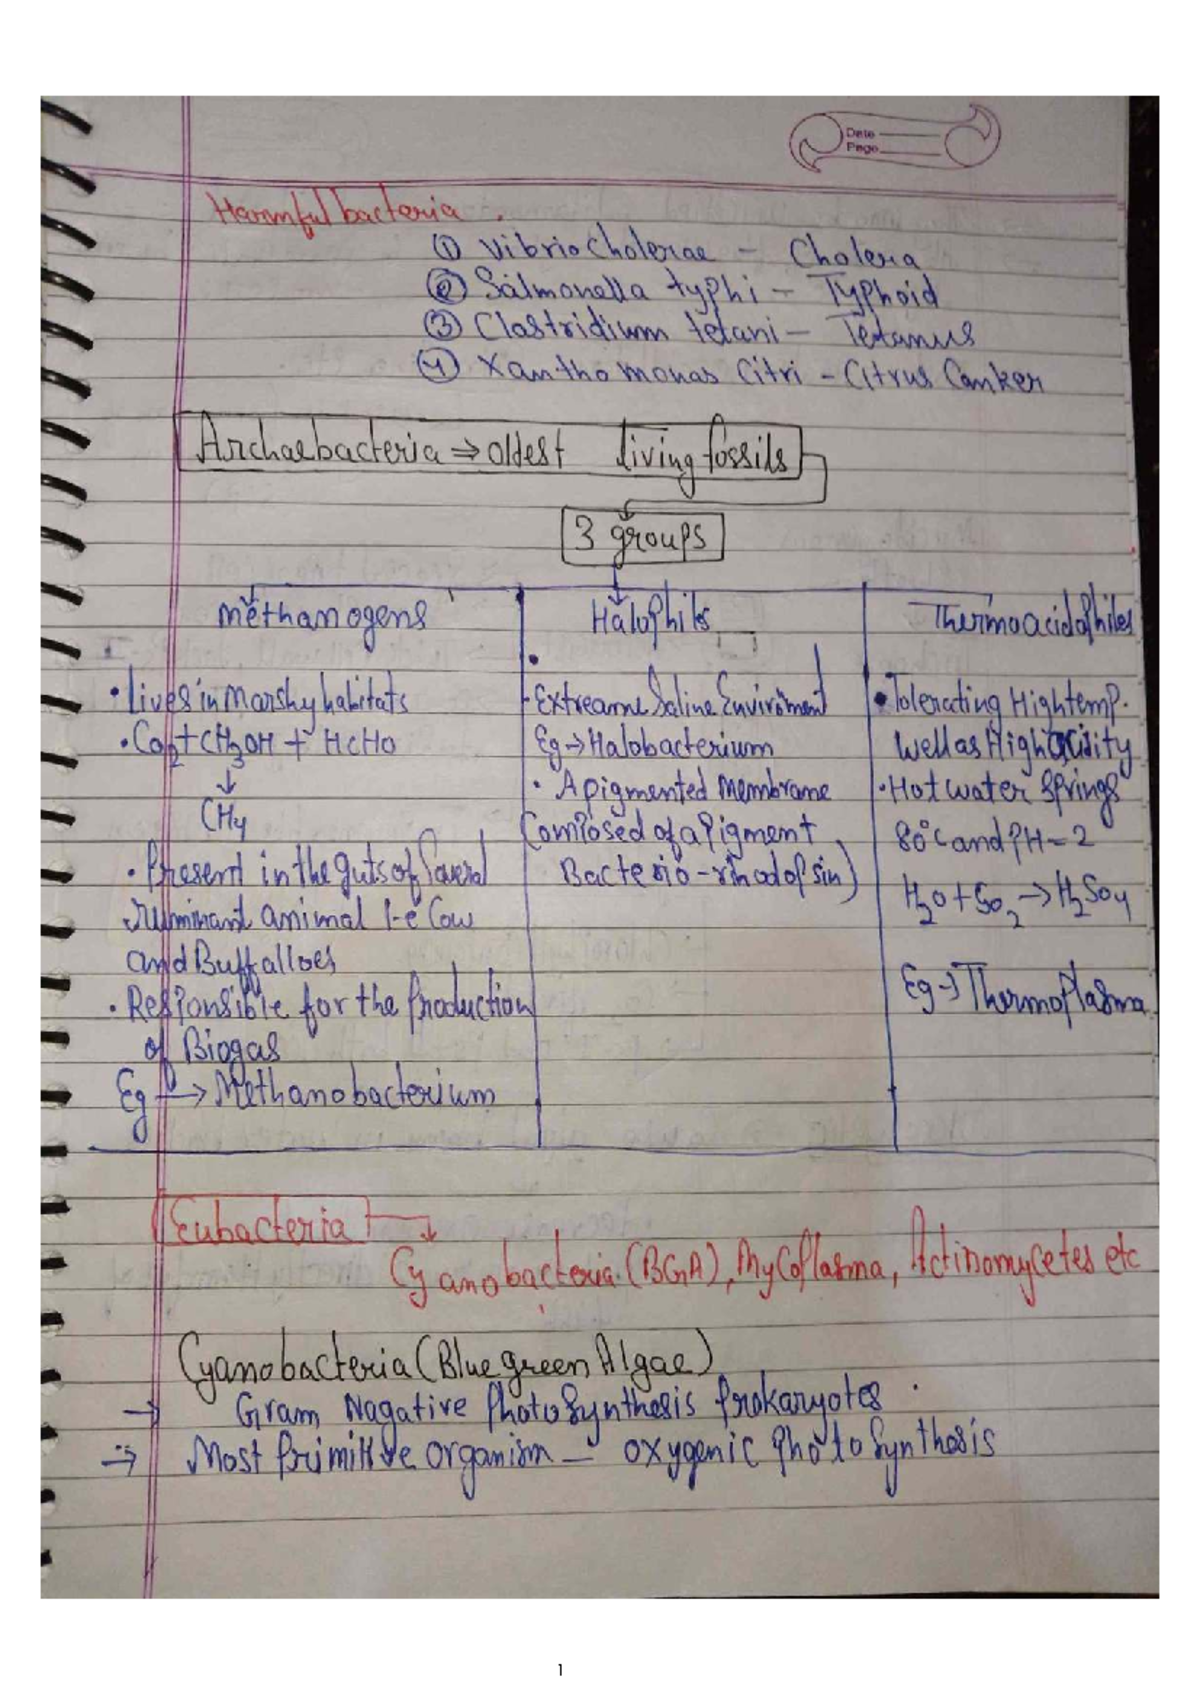 Date
Page
Harmful bacteria
① Vibrio Cholerae - Cholera
② Salmonella typhi - Typhoid
③ Clostridium tetani - Tetanus
④ Xanthomonas Citri - Citrus Canker
Archaebacteria ⇒ oldest living fossils
3 groups
Methanogens
• Lives in Marshy habitats
• Co2 + CH3OH + HCHO
↓
CH4
• Present in the guts of Several
ruminant animal i-e Cow
and Buffalloes
• Responsible for the Production
of Biogas
Eg → Methanobacterium
Halophiles
• Extreame Saline Enviroment
Eg → Halobacterium
• A pigmented Membrane
Composed of a Pigment
Bacterio-rhodopsin)
Thermoacidophiles
• Tolerating High temp.
well as High acidity
• Hot water Springs
80°c and PH = 2
H2O + SO2 → H2SO4
Eg → Thermoplasma
Eubacteria
Cyanobacteria (BGA), Mycoplasma, Actinomycetes etc
Cyanobacteria (Blue green Algae)
→ Gram Nagative PhotoSynthesis Prokaryotes.
→ Most Primitive organism - oxygenic PhotoSynthesis
1